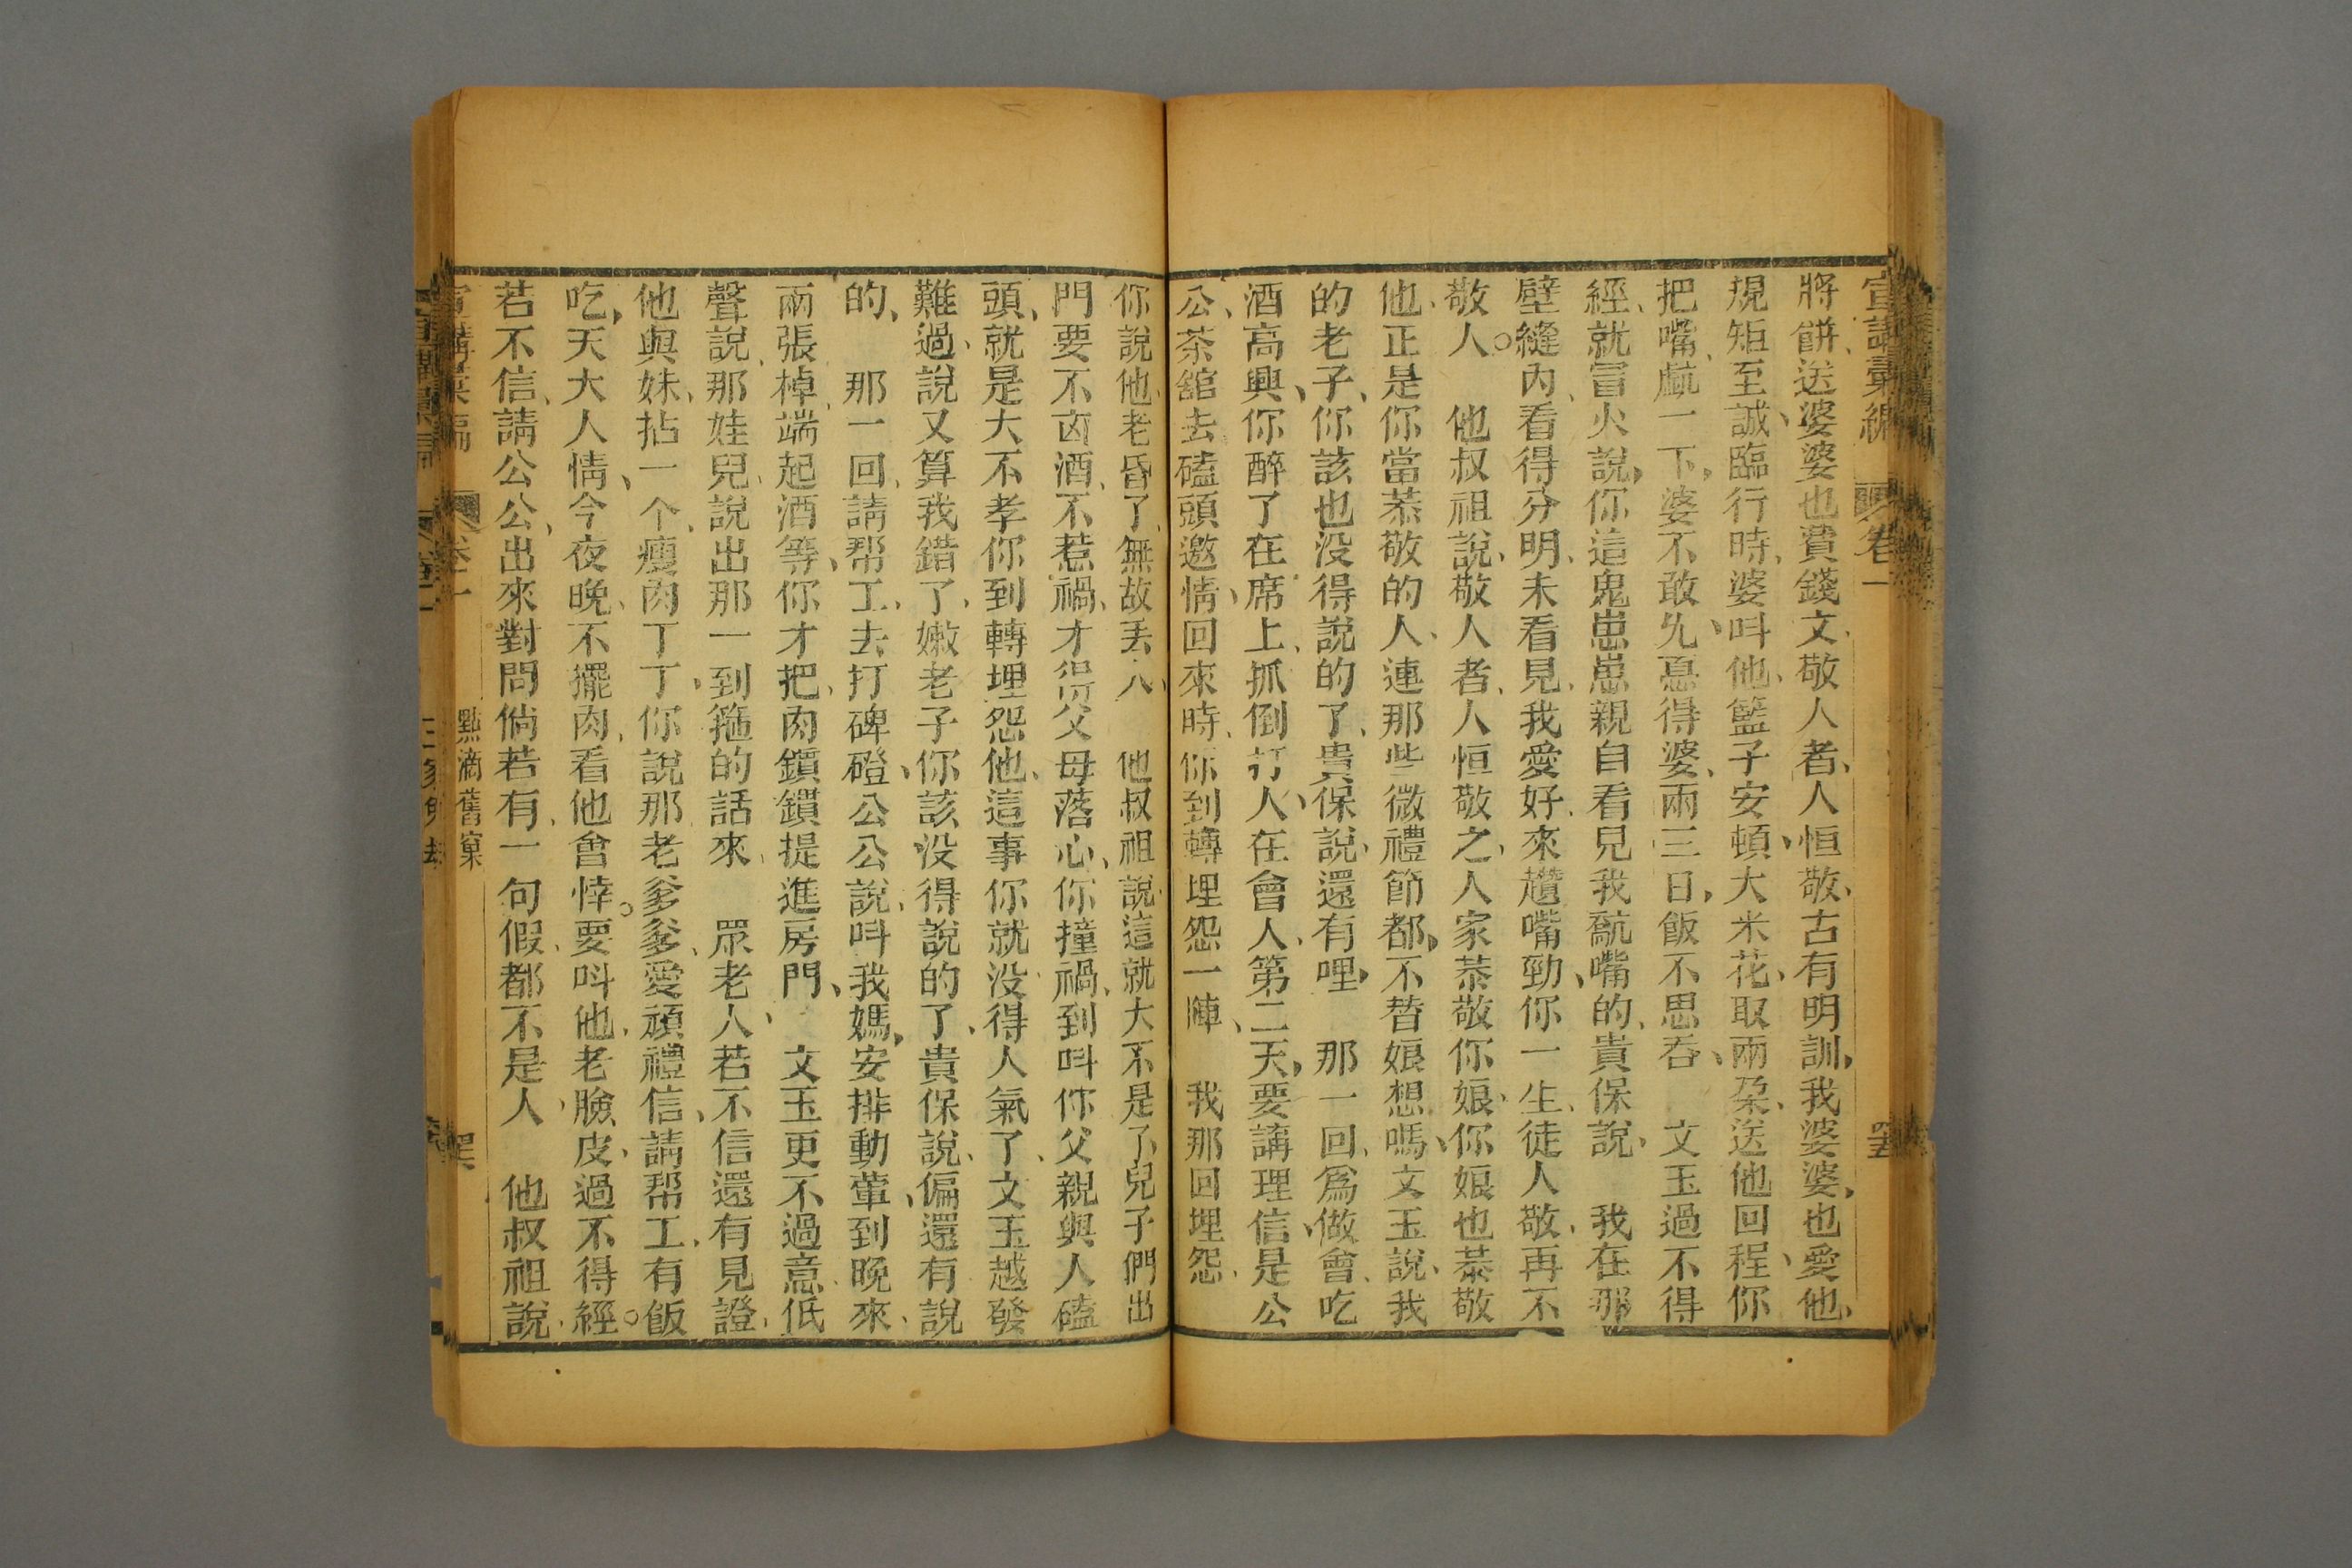 宣講彙編 卷一 四五
將餅、送婆婆也費錢文、敬人者、人恒敬、古有明訓、我婆婆、也愛他、
規矩至誠、臨行時、婆呌他、籃子安頓、大米花、取兩朶、送他回程、你
把嘴、䖏一下、婆不敢允、慪得婆、兩三日、飯不思吞、 文玉過不得
經、就冒火說、你這鬼崽崽親自看見我䖏嘴的、貴保說、 我在那
壁縫內、看得分明、未看見、我愛好、來趲嘴勁、你一生、徒人敬、再不
敬人。 他叔祖說、敬人者、人恒敬之、人家恭敬你娘、你娘也恭敬
他、正是你當恭敬的人、連那些微禮節都、不替娘想嗎、文玉說、我
的老子、你該也没得說的了、貴保說、還有哩、 那一回、爲做會、吃
酒高興、你醉了在席上、抓倒打人、在會人、第二天、要講理信、是公
公、茶舘去磕頭邀情、回來時、你到轉埋怨一陣、 我那回埋怨、
你說他、老昏了、無故丟人 他叔祖說這就大不是了、兒子們出
門要不凶酒、不惹禍、才得父母落心、你撞禍、到呌你父親與人磕
頭、就是大不孝你到轉埋怨他、這事你就没得人氣了、文玉越發
難過、說又算我錯了、嫩老子你該没得說的了、貴保說、偏還有說
的、 那一回、請帮工、去打碑磴、公公說、呌我媽、安排動葷、到晚來、
兩張棹、端起酒等、你才把、肉鑽鑽提進房門、 文玉更不過意、低
聲說、那娃兒、說出那一到箍的話來、 眾老人、若不信還有見證、
他與妹、拈一个、瘦肉丁丁、你說那老爹爹、愛頑禮信、請帮工、有飯
吃、天大人情、今夜晚、不擺肉、看他會悖。要呌他、老臉皮、過不得經。
若不信、請公公、出來對問倘若有、一句假、都不是人、 他叔祖說、
宣講彙編 卷一 點滴舊窠 四六